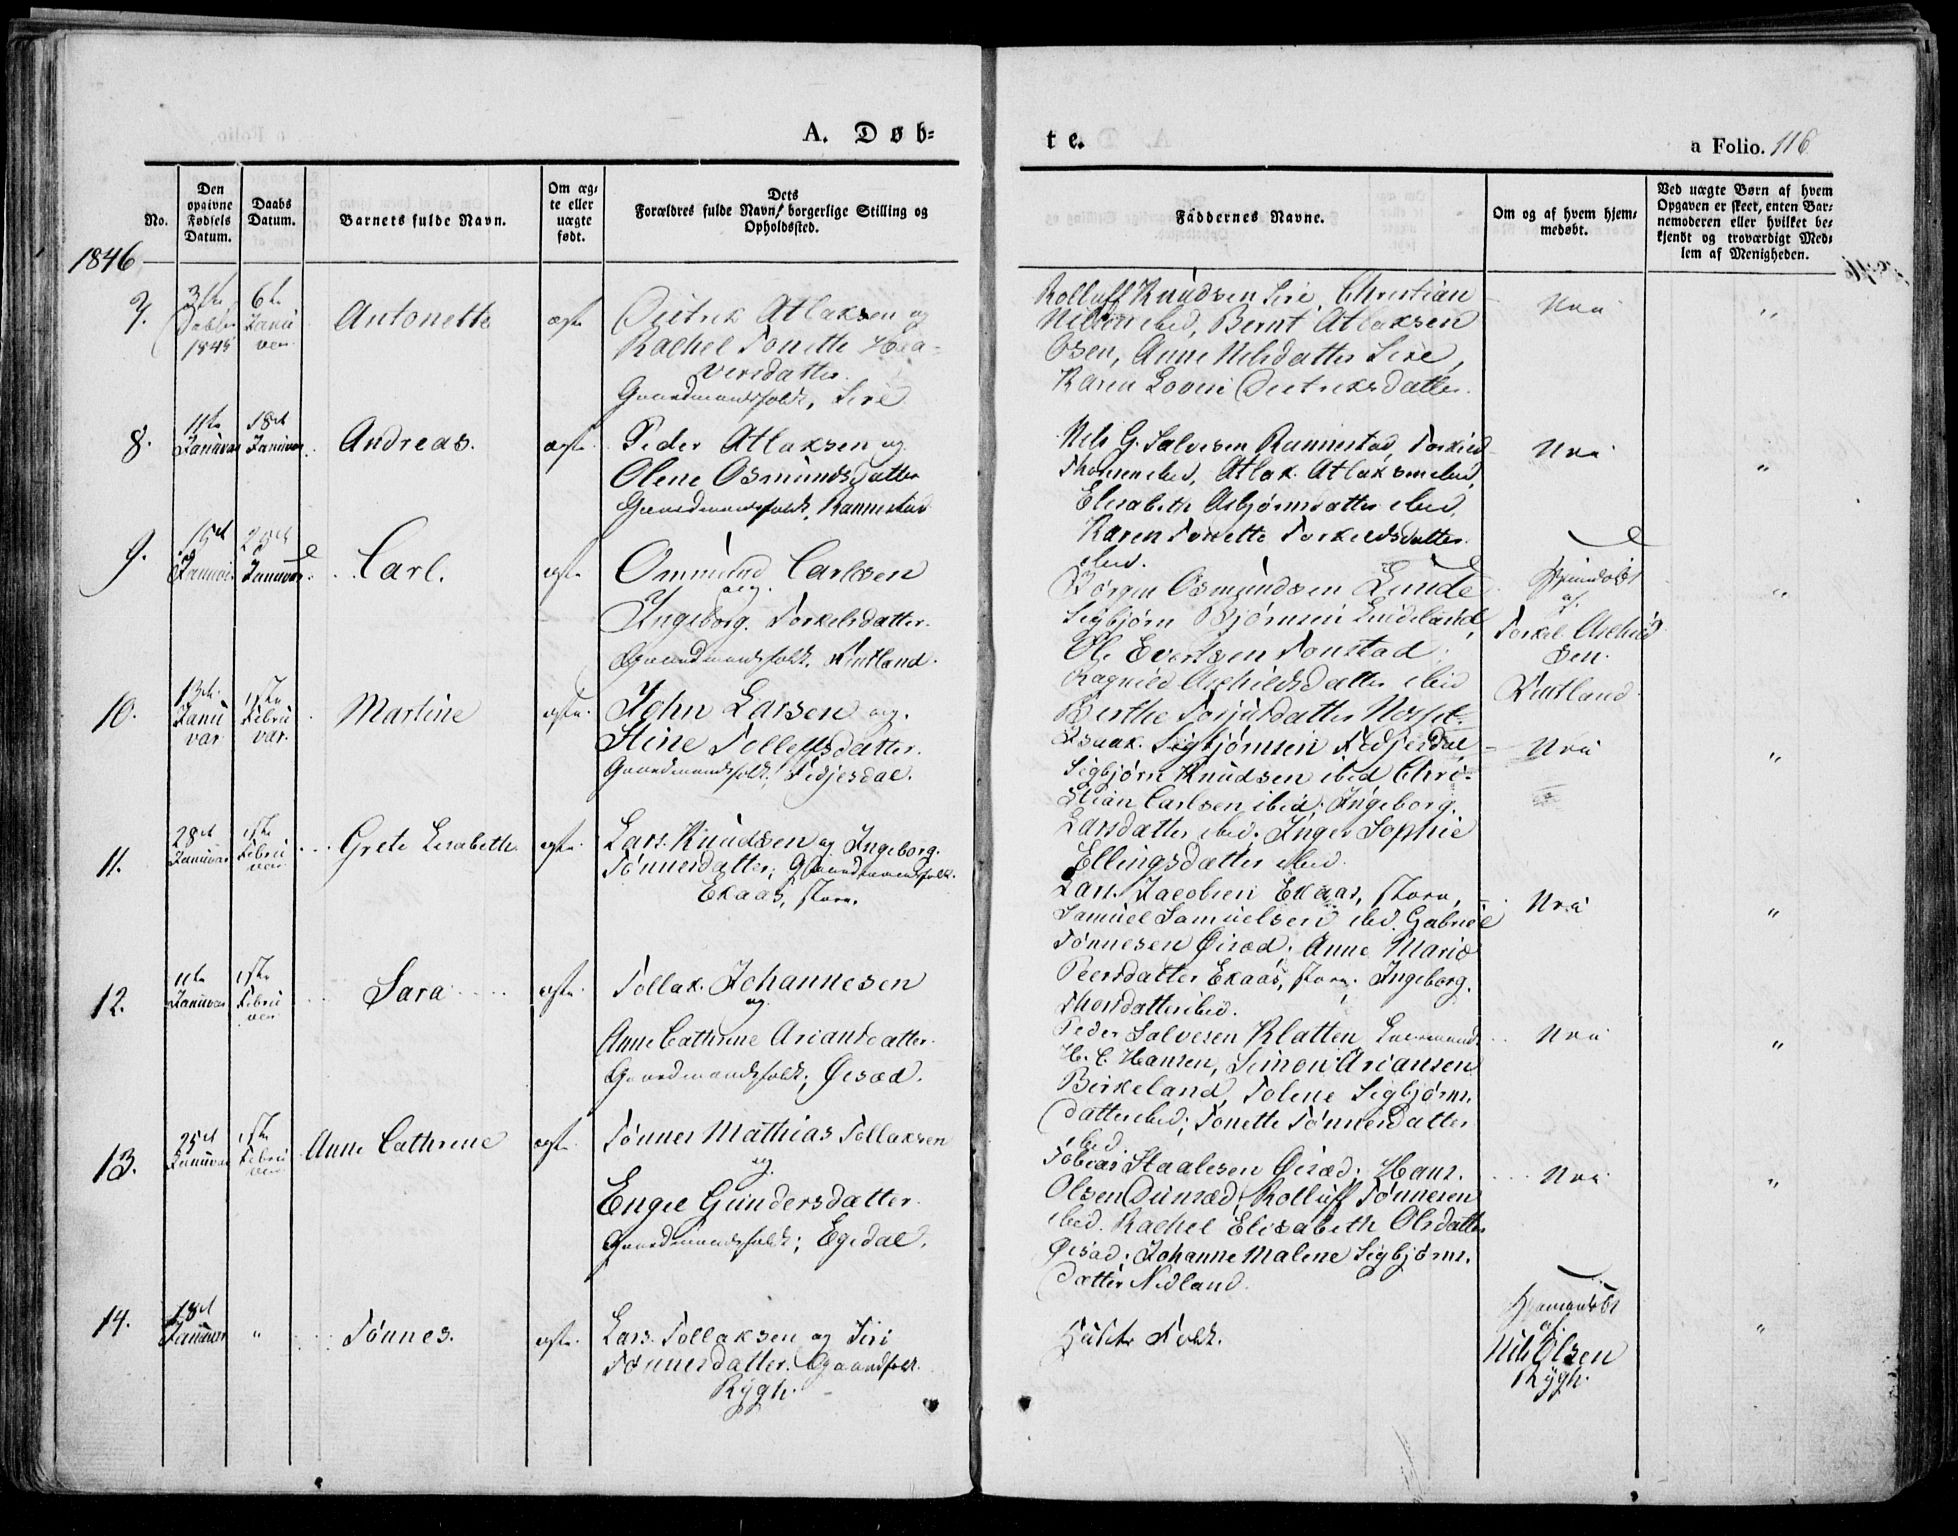 A. Døb-
te.
a Folio. 116
No.
Den opgivne Fødsels Datum.
Daabs Datum.
Barnets fulde Navn.
Om ægte eller uægte født.
Dets Forældres fulde Navn, borgerlige Stilling og Opholdssted.
Faddernes Navne.
Om og af hvem hjemmedøbt.
Ved uægte Børn af hvem Opgaven er skeet, enten Barnemoderen eller hvilket bekjendt og troværdigt Medlem af Menigheden.
1846
7.
1845
6te Janu
Antonette
ægte
Didrik Atlaksen og
Rachel Tonette
Gaardmandsfolk, Sire
Rolluff Knudsen Sire, Christian
Nilsen ibid, Bernt Atlaksen
Osen, Anne Nilsdatter Sire,
Karen Lovise Didriksdatter
Nei
"
8.
11te Januar
18de Januar
Andreas.
ægte
Peder Atlaksen og
Olene Osmundsdatter
Gaardmandsfolk, Rannestad
Nils G. Salvesen Rannestad, Torkild
Thorsen ibid, Atlak Atlaksen ibid,
Elisabeth Asbjørnsdatter ibid,
Karen Tonette Torkeldsdatter
ibid.
Nei
"
9.
15de Januar
25de Januar
Carl.
ægte
Ommund Carlsen
og
Ingeborg Torkelsdatter.
Gaardmandsfolk,
Børge Osmundsen Lunde
Sigbjørn Bjørnsen Lindeland,
Ole Evertsen Tonstad,
Ragnild Aschildsdatter ibid
Berthe
Hjemdøbt
af
Torkel Aschildsen
"
10.
13de Januvar
1ste Februvar.
Martine
ægte
John Larsen og
Stine Tolleffsdatter.
Gaardmandsfolk, Fidjesdal.
Isaak Sigbjørnsen Fidjesdal
Sigbjørn Knudsen ibid Chri-
stian Carlsen ibid. Ingeborg
Larsdatter ibid, Inger Sophie
Ellingsdatter ibid.
Nei
"
11.
28de Januvar
1ste Februvar
Grete Lisabeth
ægte
Lars Knudsen og Ingeborg
Tønnesdatter, Gaardmandsfolk.
Ekaas, store.
Lars Jacobsen Ekaas, store,
Samuel Samuelsen ibid. Gabriel
Tønnesen Øisæd, Anne Marie
Peersdatter Ekaas, store. Ingeborg
Thorsdatter ibid.
Nei
"
12.
11te Januvar
1ste Februvar
Sara
ægte
Tollak Johannesen
og
Anne Cathrine Ariansdatter
Gaardmandsfolk, Øisæd.
Peder Salvesen Klatten,
H. C. Hansen, Simon Ariansen
Birkeland, Tolene Sigbjørns-
datter ibid, Tonette Tønnesdatter
ibid.
Nei
"
13.
25de Januvar
1ste Februvar
Anne Cathrine
ægte
Tønnes Mathias Tollaksen
og
Engel Gundersdatter
Gaardmandsfolk, Egedal.
Tobias Staalesen Øisæd, Hans
Olsen Dunsæd, Rolluff Tønnesen
ibid. Rachel Elisabeth Olsdatter
Øisæd, Johanne Malene Sigbjørns-
datter Nedland.
Nei
"
14.
18de Januvar
"
Tønnes.
ægte
Lars Tollaksen og Siri
Tønnesdatter. Gaardfolk.
Rygh.
Folk.
Hjemmedøbt
af
Nils Olsen
Rygh.
"